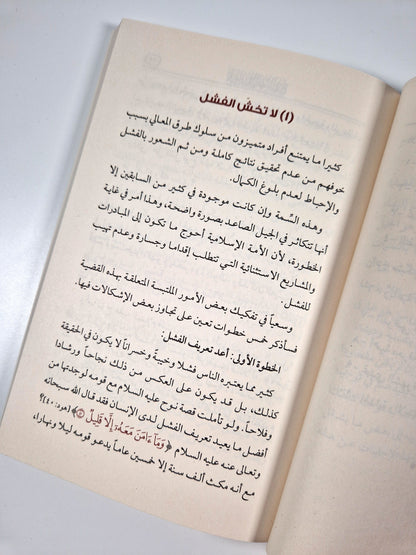 (١) لا تخش الفشل
كثيرا ما يمتنع أفراد متميزون من سلوك طرق المعالي بسبب
خوفهم من عدم تحقيق نتائج كاملة ومن ثم الشعور بالفشل
والإحباط لعدم بلوغ الكمال.
وهذه السِّمة وإن كانت موجودة في كثير من السابقين إلا
أنها تتكاثر في الجيل الصاعد بصورة واضحة، وهذا أمر في غاية
الخطورة، لأن الأمة الإسلامية أحوج ما تكون إلى المبادرات
والمشاريع الاستثنائية التي تتطلب إقداما وجسارة وعدم تهيب
للفشل.
وسعياً في تفكيك بعض الأمور الملتبسة المتعلقة بهذه القضية
فسأذكر خمس خطوات تعين على تجاوز بعض الإشكالات فيها.
الخطوة الأولى: أعد تعريف الفشل:
كثير مما يعتبره الناس فشلا وخيبةً وخسراناً لا يكون في الحقيقة
كذلك، بل قد يكون على العكس من ذلك نجاحاً ورشادا
وفلاحاً. ولو تأملت قصة نوح عليه السلام مع قومه لوجدتها من
أفضل ما يعيد تعريف الفشل لدى الإنسان فقد قال الله سبحانه
وتعالى عنه عليه السلام ﴿وَمَآ ءَامَنَ مَعَهُۥٓ إِلَّا قَلِيلٌ ۝﴾ [هود: ٤٠]؟
مع أنه مكث ألف سنة إلا خمسين عاماً يدعو قومه ليلا ونهارا،